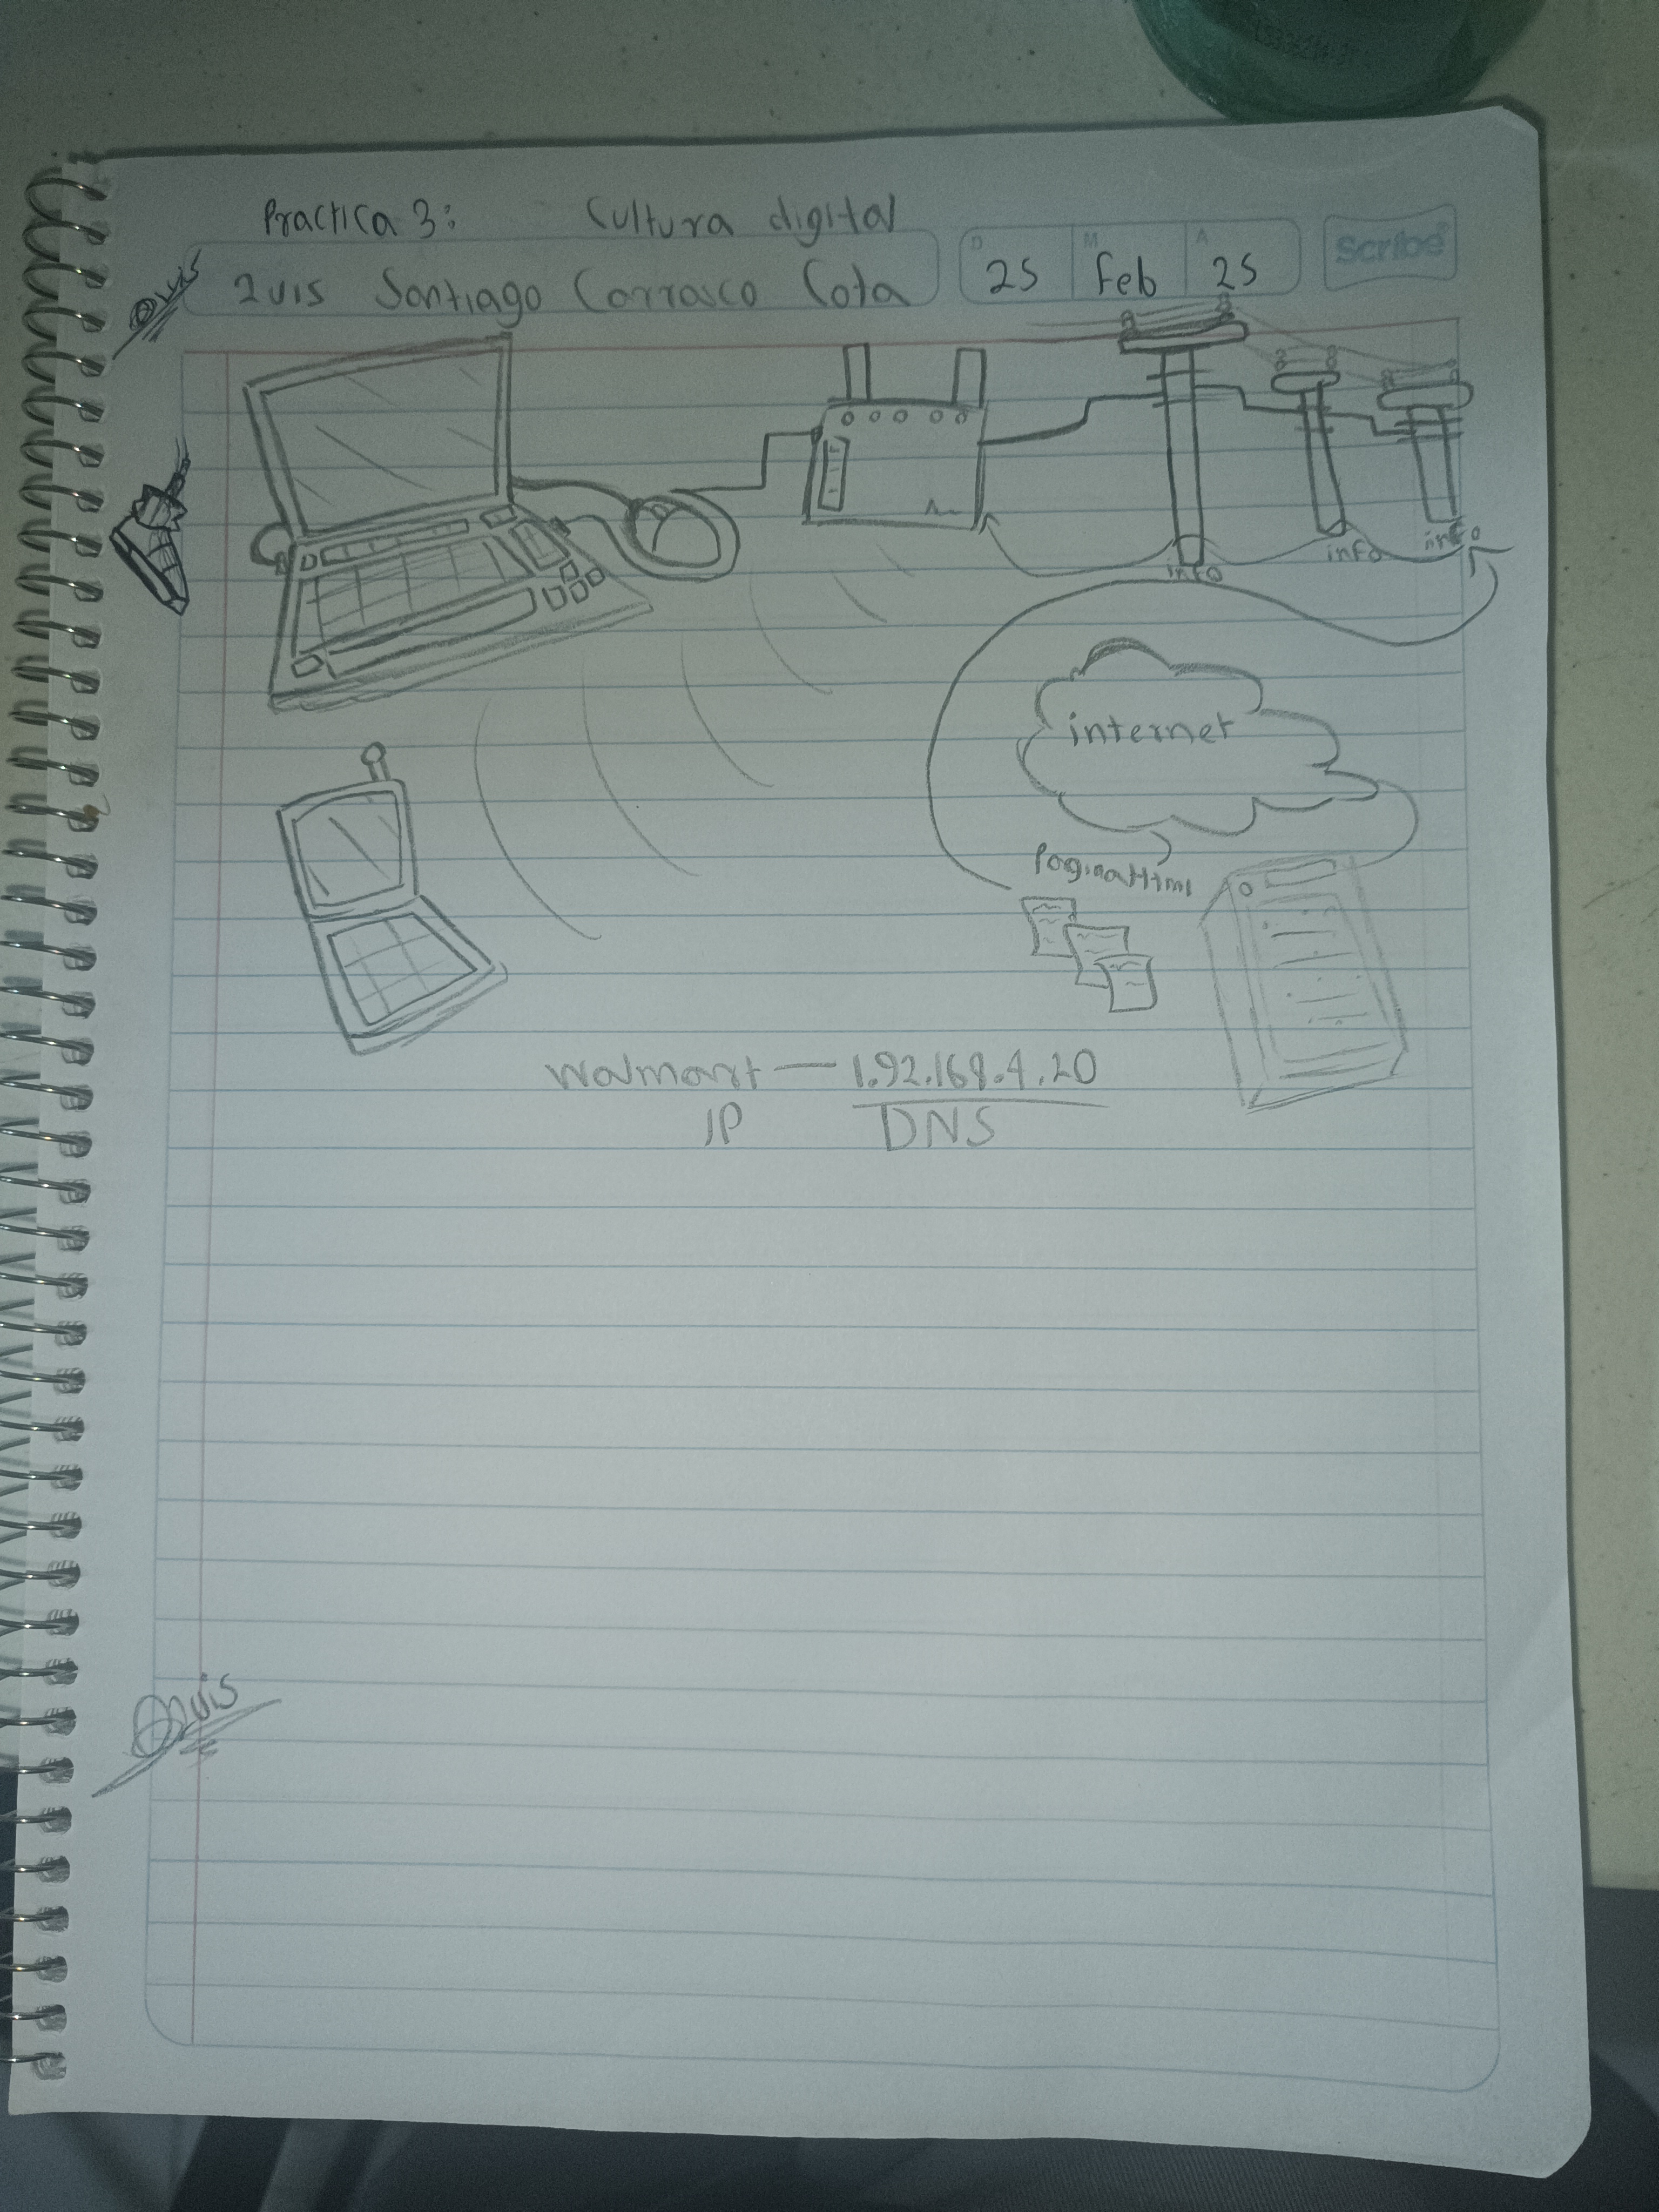 Practica 3: Cultura digital
Luis Santiago Carrasco Cota
D M A
25 Feb 25
Scribe
Luis
info info info
internet
Pagina Html
Walmart — 1.92.168.4.20
IP DNS
Luis